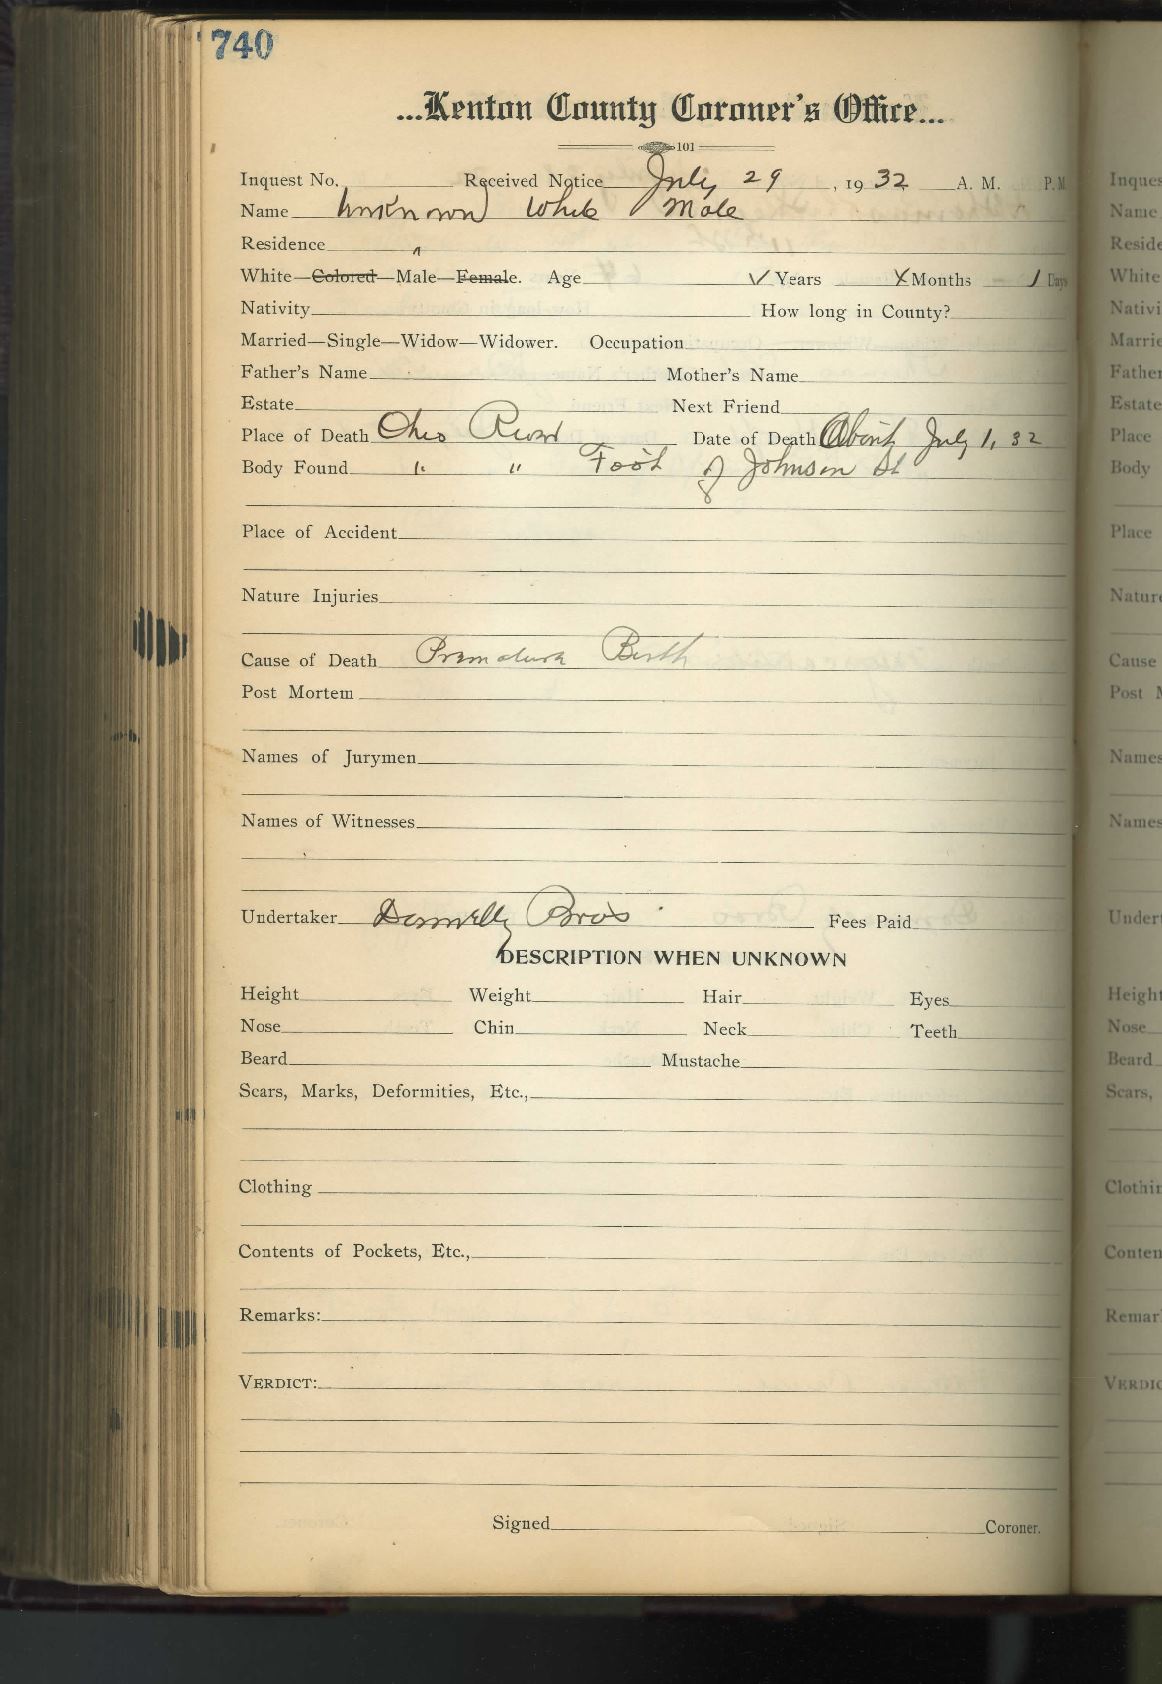 740
...Kenton County Coroner's Office...
101
Inquest No. Received Notice July 29, 1932 A. M. P. M.
Name Unknown White Male
Residence "
White—Colored—Male—Female. Age ✓ Years X Months 1 Days
Nativity How long in County?
Married—Single—Widow—Widower. Occupation
Father's Name Mother's Name
Estate Next Friend
Place of Death Ohio River Date of Death About July 1, 32
Body Found " " Foot of Johnson St
Place of Accident
Nature Injuries
Cause of Death Premature Birth
Post Mortem
Names of Jurymen
Names of Witnesses
Undertaker Donnelly Bros Fees Paid
DESCRIPTION WHEN UNKNOWN
Height Weight Hair Eyes
Nose Chin Neck Teeth
Beard Mustache
Scars, Marks, Deformities, Etc.,
Clothing
Contents of Pockets, Etc.,
Remarks:
VERDICT:
Signed Coroner.
Inques
Name
Reside
White
Nativi
Marrie
Father
Estate
Place
Body
Place
Nature
Cause
Post M
Names
Names
Undert
Height
Nose
Beard
Scars,
Clothin
Conten
Remar
VERDIC